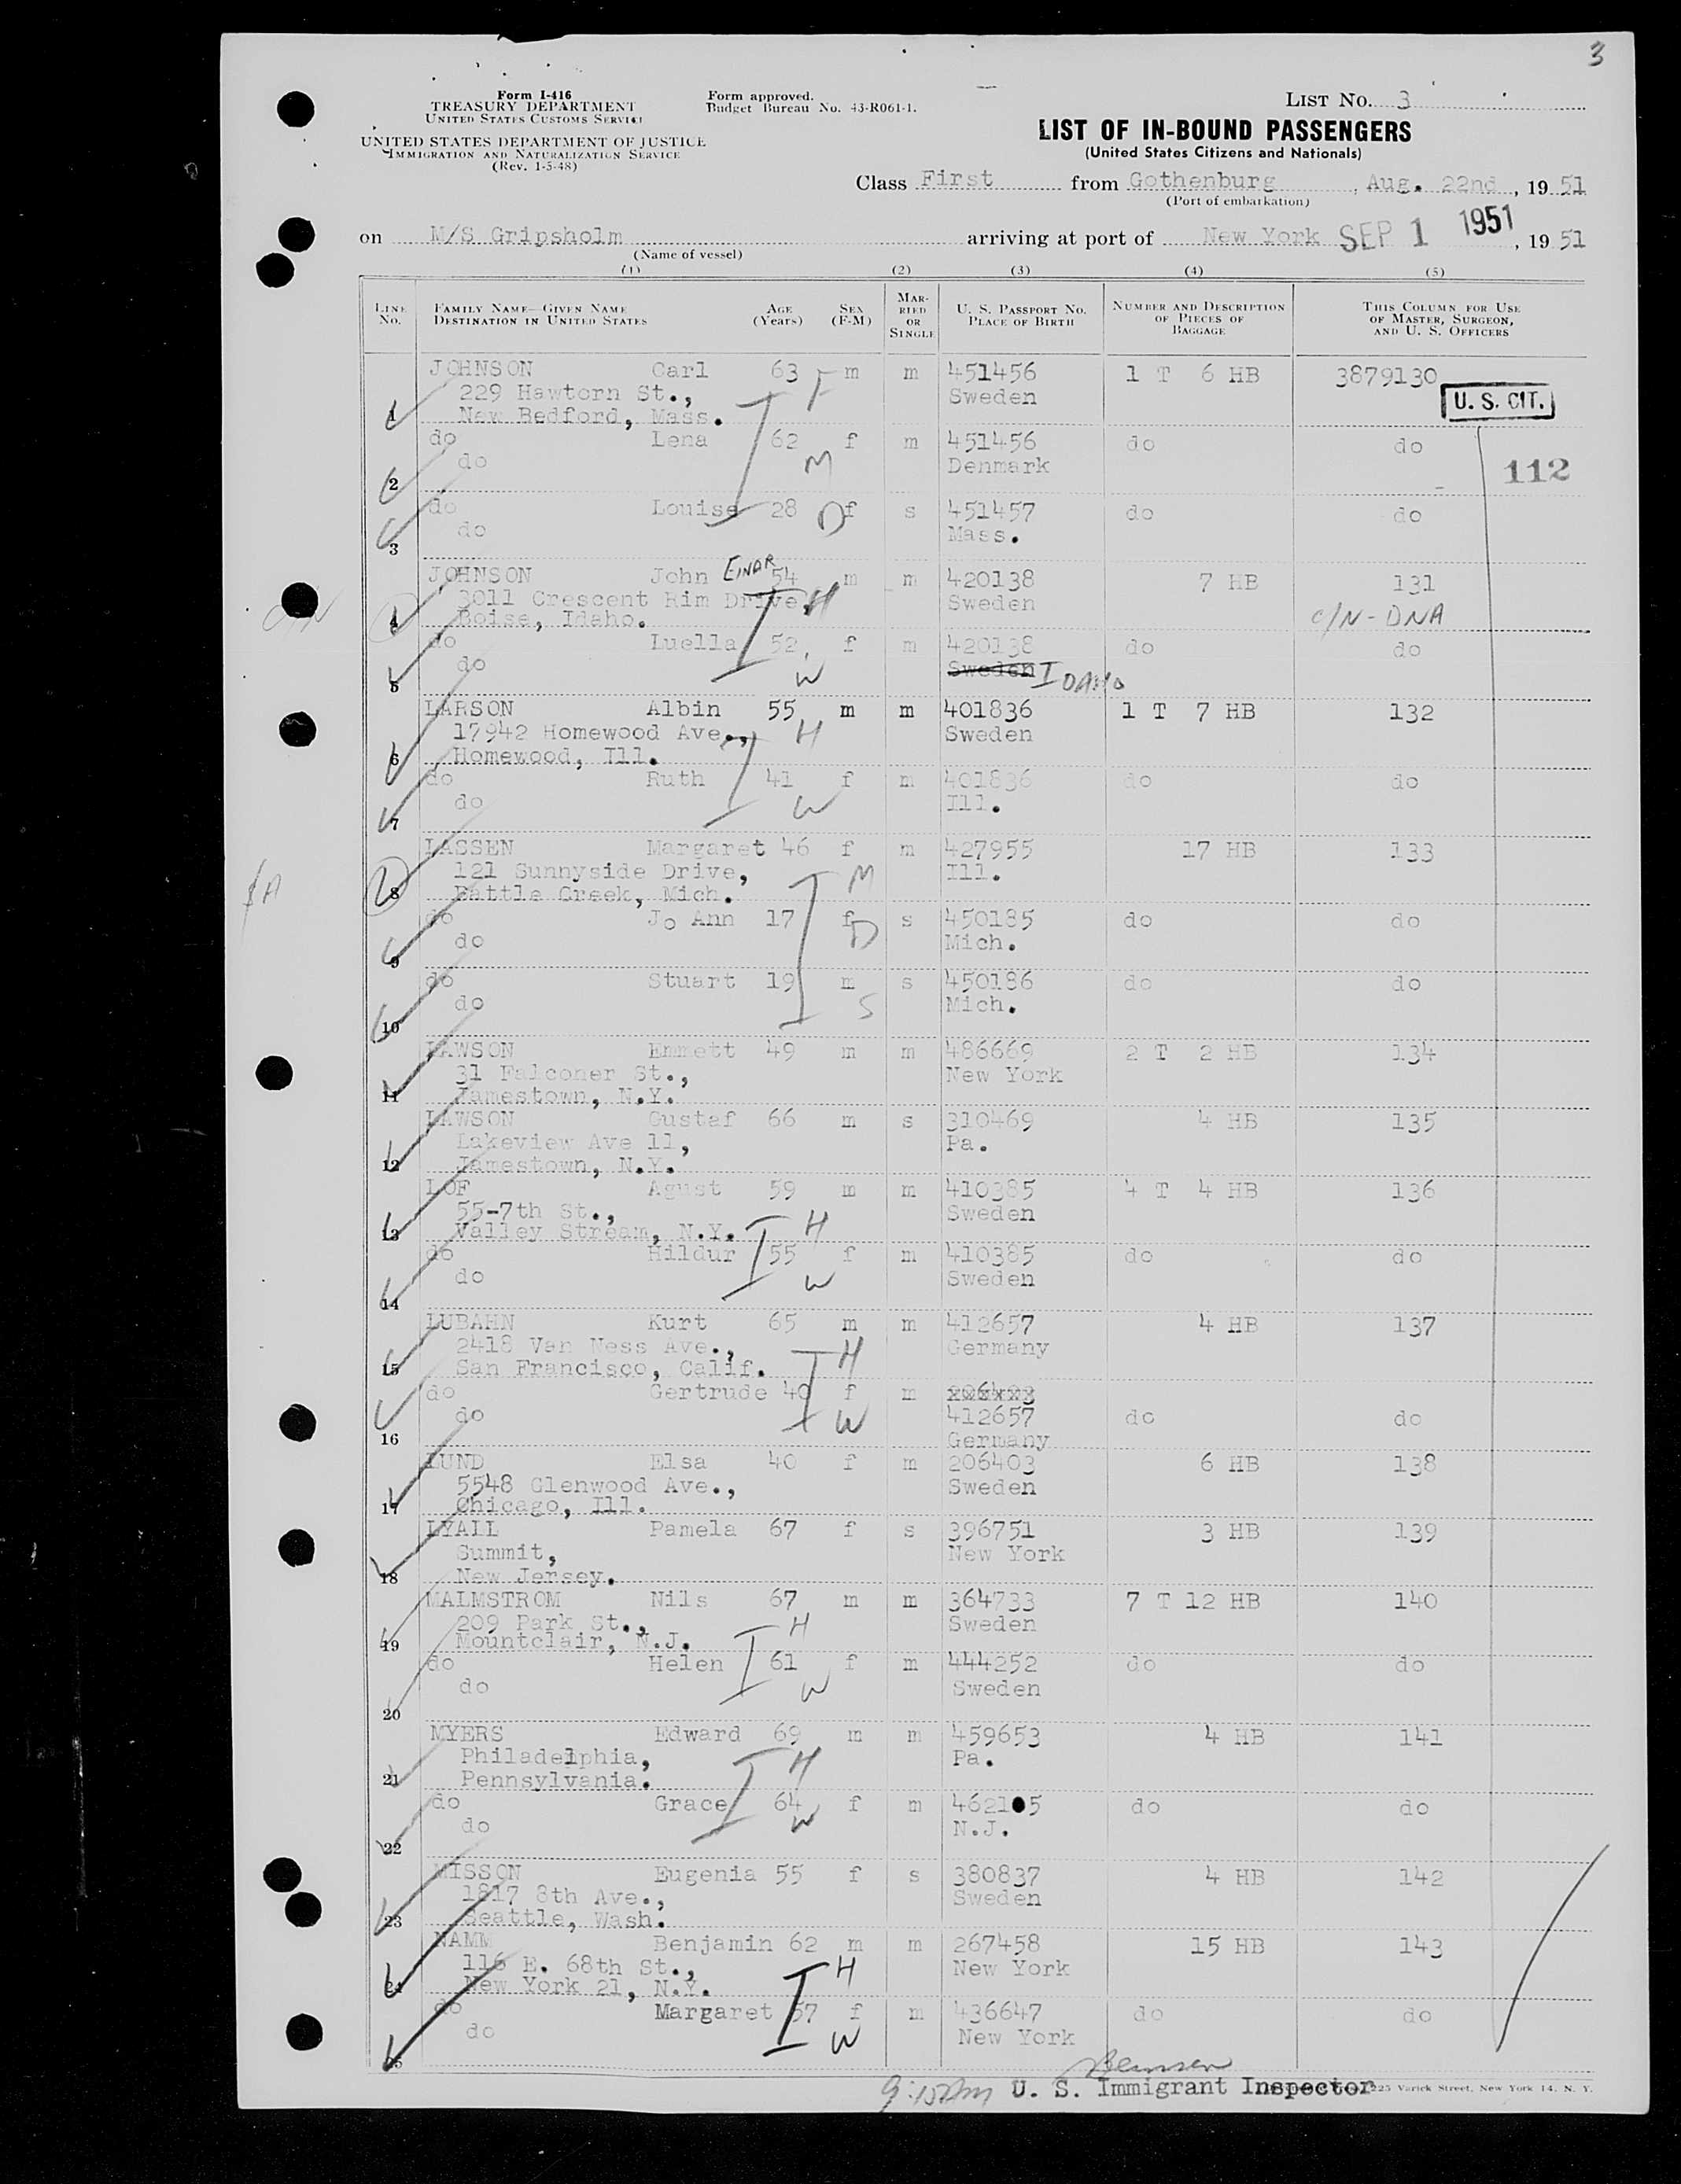 3
Form I-416
TREASURY DEPARTMENT
UNITED STATES CUSTOMS SERVICE
UNITED STATES DEPARTMENT OF JUSTICE
IMMIGRATION AND NATURALIZATION SERVICE
(Rev. 1-5-48)
Form approved.
Budget Bureau No. 43-R061-1.
LIST No. 3
LIST OF IN-BOUND PASSENGERS
(United States Citizens and Nationals)
Class First from Gothenburg, Aug. 22nd, 19 51
(Port of embarkation)
on M/S Gripsholm arriving at port of New York SEP 1 1951, 19 51
(Name of vessel)
(1) (2) (3) (4) (5)
LINE No. FAMILY NAME—GIVEN NAME DESTINATION IN UNITED STATES AGE (Years) SEX (F-M) MARRIED OR SINGLE U. S. PASSPORT NO. PLACE OF BIRTH NUMBER AND DESCRIPTION OF PIECES OF BAGGAGE THIS COLUMN FOR USE OF MASTER, SURGEON, AND U. S. OFFICERS
JOHNSON Carl 63 F m m 451456 1 T 6 HB 3879130
229 Hawtorn St., Sweden U. S. CIT.
1 New Bedford, Mass.
do Lena 62 f m 451456 do do
do M Denmark 112
2
do Louise 28 D f s 451457 do do
do Mass.
3
JOHNSON John EINAR 54 m m 420138 7 HB 131
3011 Crescent Rim Drive, H Sweden
C/N 4 Boise, Idaho. C/N - DNA
do Luella 52 f m 420138 do do
do W Sweden IDAHO
5
LARSON Albin 55 m m 401836 1 T 7 HB 132
17942 Homewood Ave., H Sweden
6 Homewood, Ill.
do Ruth 41 f m 401836 do do
do W Ill.
7
LASSEN Margaret 46 f m 427955 17 HB 133
121 Sunnyside Drive, M Ill.
8 Battle Creek, Mich.
do Jo Ann 17 f s 450185 do do
do D Mich.
9
do Stuart 19 m s 450186 do do
do S Mich.
10
LAWSON Emmett 49 m m 486669 2 T 2 HB 134
31 Falconer St., New York
11 Jamestown, N.Y.
LAWSON Gustaf 66 m s 310469 4 HB 135
Lakeview Ave 11, Pa.
12 Jamestown, N.Y.
LOF Agust 59 m m 410385 4 T 4 HB 136
55-7th St., Sweden
13 Valley Stream, N.Y. H
do Hildur 55 f m 410385 do do
do W Sweden
14
LUBAHN Kurt 65 m m 412657 4 HB 137
2418 Van Ness Ave., H Germany
15 San Francisco, Calif.
do Gertrude 40 f m
do W 412657 do do
16 Germany
LUND Elsa 40 f m 206403 6 HB 138
5548 Glenwood Ave., Sweden
17 Chicago, Ill.
LYALL Pamela 67 f s 396751 3 HB 139
Summit, New York
18 New Jersey.
MALMSTROM Nils 67 m m 364733 7 T 12 HB 140
209 Park St., H Sweden
19 Mountclair, N.J.
do Helen 61 f m 444252 do do
do W Sweden
20
MYERS Edward 69 m m 459653 4 HB 141
Philadelphia, H Pa.
21 Pennsylvania.
do Grace 64 f m 4621 5 do do
do W N.J.
22
MISSON Eugenia 55 f s 380837 4 HB 142
1817 8th Ave., Sweden
23 Seattle, Wash.
NAMM Benjamin 62 m m 267458 15 HB 143
116 E. 68th St., H New York
24 New York 21, N.Y.
do Margaret 57 f m 436647 do do
do W New York
25
9:15AM U. S. Immigrant Inspector 225 Varick Street, New York 14, N. Y.